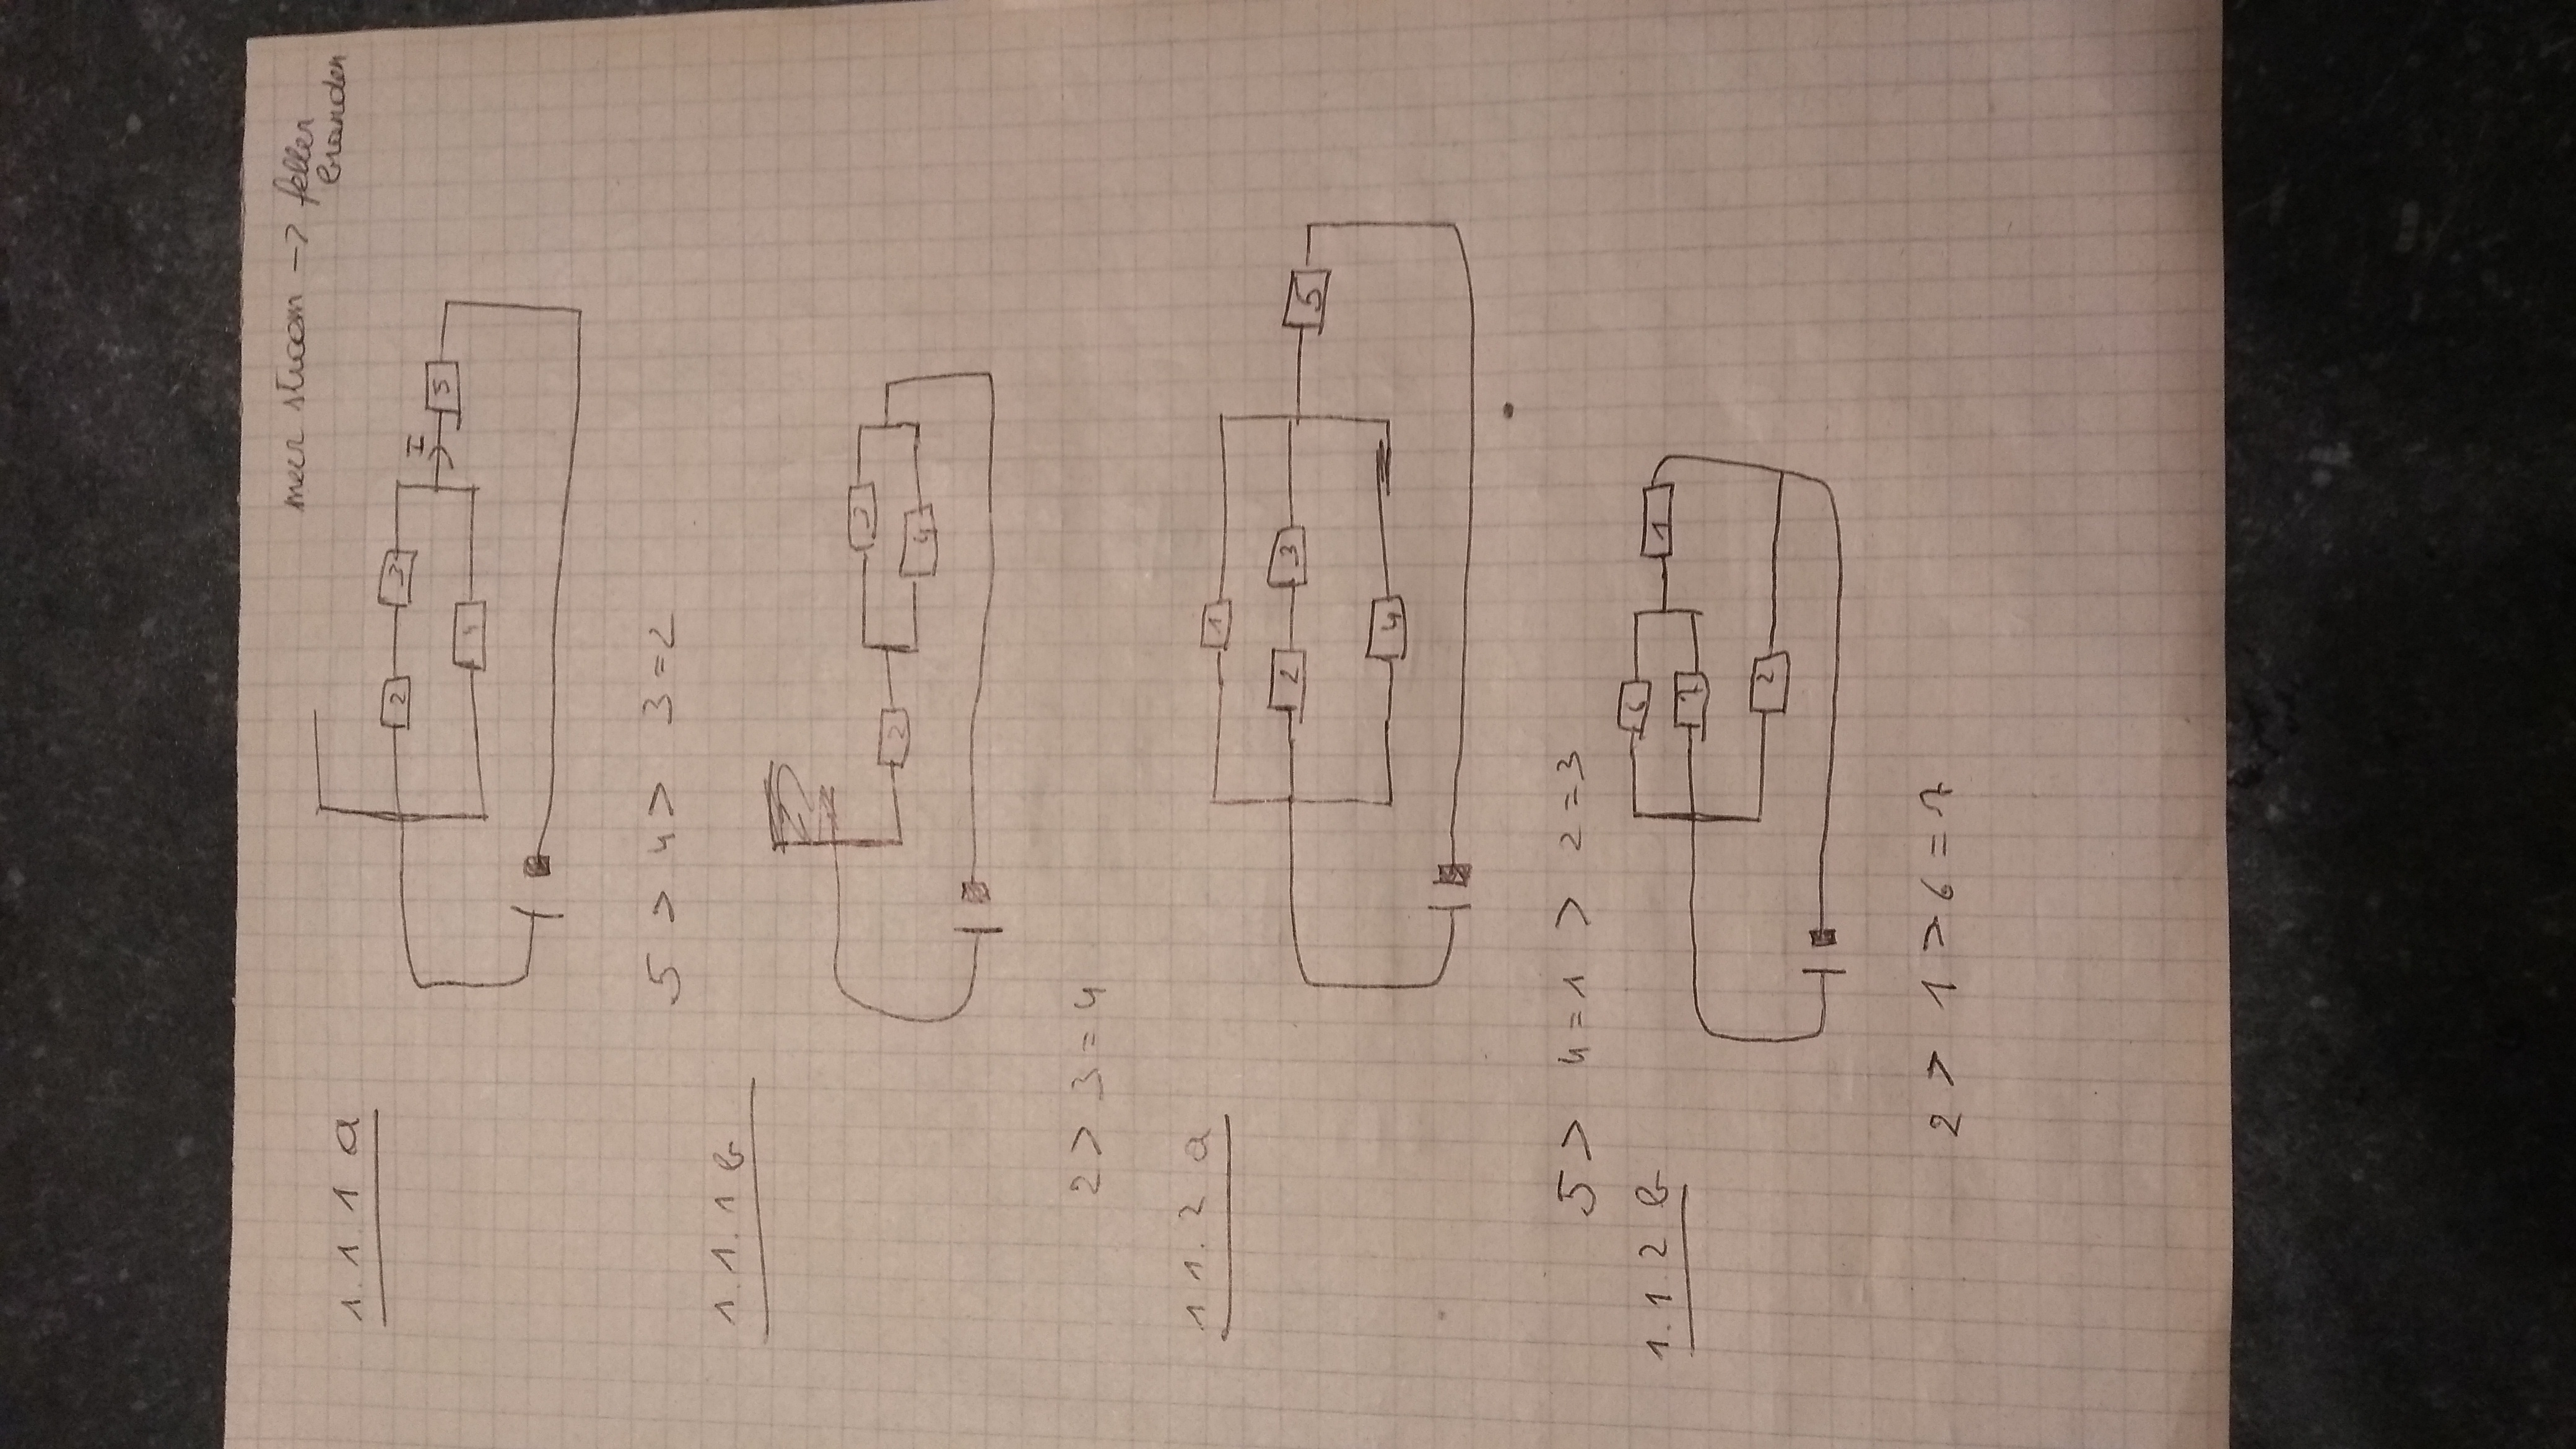 meer stroom -> feller
branden
1.1.1 a
2 3
I
5
4
5 > 4 > 3 = 2
1.1.1 b
3
2
4
2 > 3 = 4
1 1.2 a
1
2 3
5
4
5 > 4 = 1 > 2 = 3
1.1.2 b
6
1
7
2
2 > 1 > 6 = 7